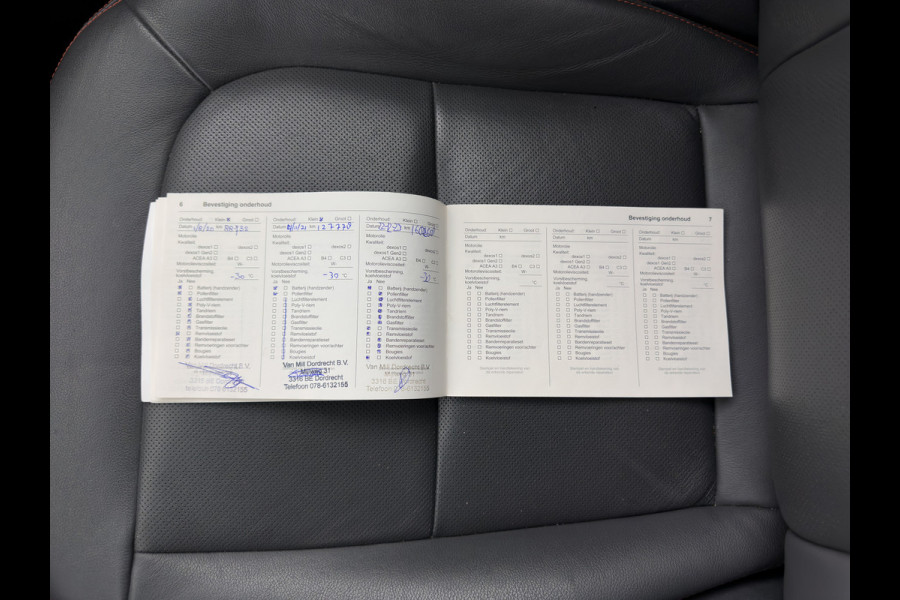 6 Bevestiging onderhoud
Onderhoud: Klein Groot
Datum km
Motorolie
Kwaliteit:
dexos1 dexos2
dexos1 Gen2
ACEA A3 B4 C3
Motorolieviscositeit: W-
Vorstbescherming
koelvloeistof -30 °C
Ja Nee
Batterij (handzender)
Pollenfilter
Luchtfilterelement
Poly-V-riem
Tandriem
Brandstoffilter
Gasfilter
Transmissieolie
Remvloeistof
Bandenreparatieset
Remvoeringen voor/achter
Bougies
Koelvloeistof
3316 BE Dordrecht
Telefoon 078-6132155
Onderhoud: Klein Groot
Datum km 127778
Motorolie
Kwaliteit:
dexos1 dexos2
dexos1 Gen2
ACEA A3 B4 C3
Motorolieviscositeit: W-
Vorstbescherming
koelvloeistof -30 °C
Ja Nee
Batterij (handzender)
Pollenfilter
Luchtfilterelement
Poly-V-riem
Tandriem
Brandstoffilter
Gasfilter
Transmissieolie
Remvloeistof
Bandenreparatieset
Remvoeringen voor/achter
Bougies
Koelvloeistof
Van Mill Dordrecht B.V.
3316 BE Dordrecht
Telefoon 078-6132155
Onderhoud: Klein Groot
Datum km
Motorolie
Kwaliteit:
dexos1 dexos2
dexos1 Gen2
ACEA A3 B4 C3
Motorolieviscositeit: W-
Vorstbescherming
koelvloeistof °C
Ja Nee
Batterij (handzender)
Pollenfilter
Luchtfilterelement
Poly-V-riem
Tandriem
Brandstoffilter
Gasfilter
Transmissieolie
Remvloeistof
Bandenreparatieset
Remvoeringen voor/achter
Bougies
Koelvloeistof
Van Mill Dordrecht B.V.
3316 BE Dordrecht
Telefoon 078-6132155
Bevestiging onderhoud 7
Onderhoud: Klein Groot
Datum km
Motorolie
Kwaliteit:
dexos1 dexos2
dexos1 Gen2
ACEA A3 B4 C3
Motorolieviscositeit: W-
Vorstbescherming
koelvloeistof °C
Ja Nee
Batterij (handzender)
Pollenfilter
Luchtfilterelement
Poly-V-riem
Tandriem
Brandstoffilter
Gasfilter
Transmissieolie
Remvloeistof
Bandenreparatieset
Remvoeringen voor/achter
Bougies
Koelvloeistof
Onderhoud: Klein Groot
Datum km
Motorolie
Kwaliteit:
dexos1 dexos2
dexos1 Gen2
ACEA A3 B4 C3
Motorolieviscositeit: W-
Vorstbescherming
koelvloeistof °C
Ja Nee
Batterij (handzender)
Pollenfilter
Luchtfilterelement
Poly-V-riem
Tandriem
Brandstoffilter
Gasfilter
Transmissieolie
Remvloeistof
Bandenreparatieset
Remvoeringen voor/achter
Bougies
Koelvloeistof
Onderhoud: Klein Groot
Datum km
Motorolie
Kwaliteit:
dexos1 dexos2
dexos1 Gen2
ACEA A3 B4 C3
Motorolieviscositeit: W-
Vorstbescherming
koelvloeistof °C
Ja Nee
Batterij (handzender)
Pollenfilter
Luchtfilterelement
Poly-V-riem
Tandriem
Brandstoffilter
Gasfilter
Transmissieolie
Remvloeistof
Bandenreparatieset
Remvoeringen voor/achter
Bougies
Koelvloeistof